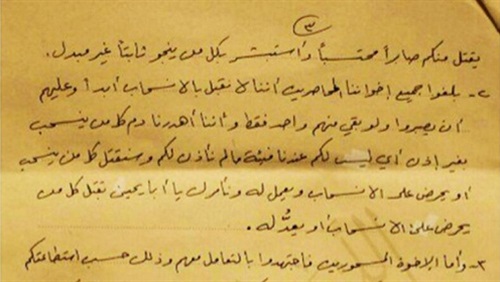 ٣
يقتل منكم صابراً محتسباً وأستبشر بكل من ينجو ثابتاً غير مبدل.
٢- بلغوا جميع إخواننا المحاصرين أننا لا نقبل بالانسحاب أبداً وعليهم
أن يصبروا ولو بقي منهم واحد فقط وأننا أهدرنا دم كل من ينسحب
بغير إذن أي ليس لكم عندنا فيئة مالم نأذن لكم وسنقتل كل من ينسحب
أو يحرض على الانسحاب ويعمل له ونأمرك يا أبا يحيى بقتل كل من
يحرض على الانسحاب أو يعدُّ له.
٣- وأما الإخوة المسحورين فاجتهدوا بالتعامل معهم وذلك حسب استطاعتكم